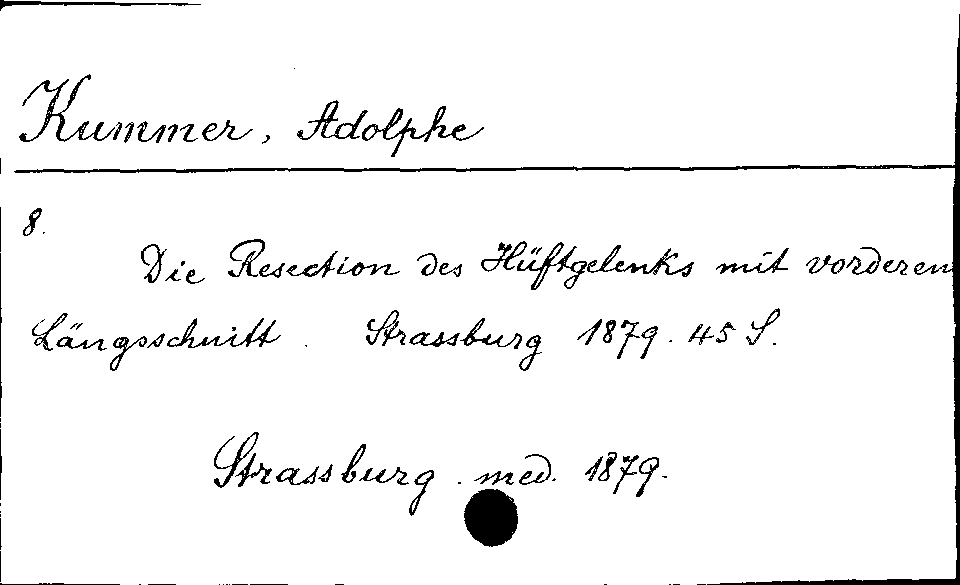 Kummer, Adolphe
8.
Die Resection des Hüftgelenks mit vorderen
Längsschnitt. Strassburg 1879. 45 S.
Strassburg. med. 1879.